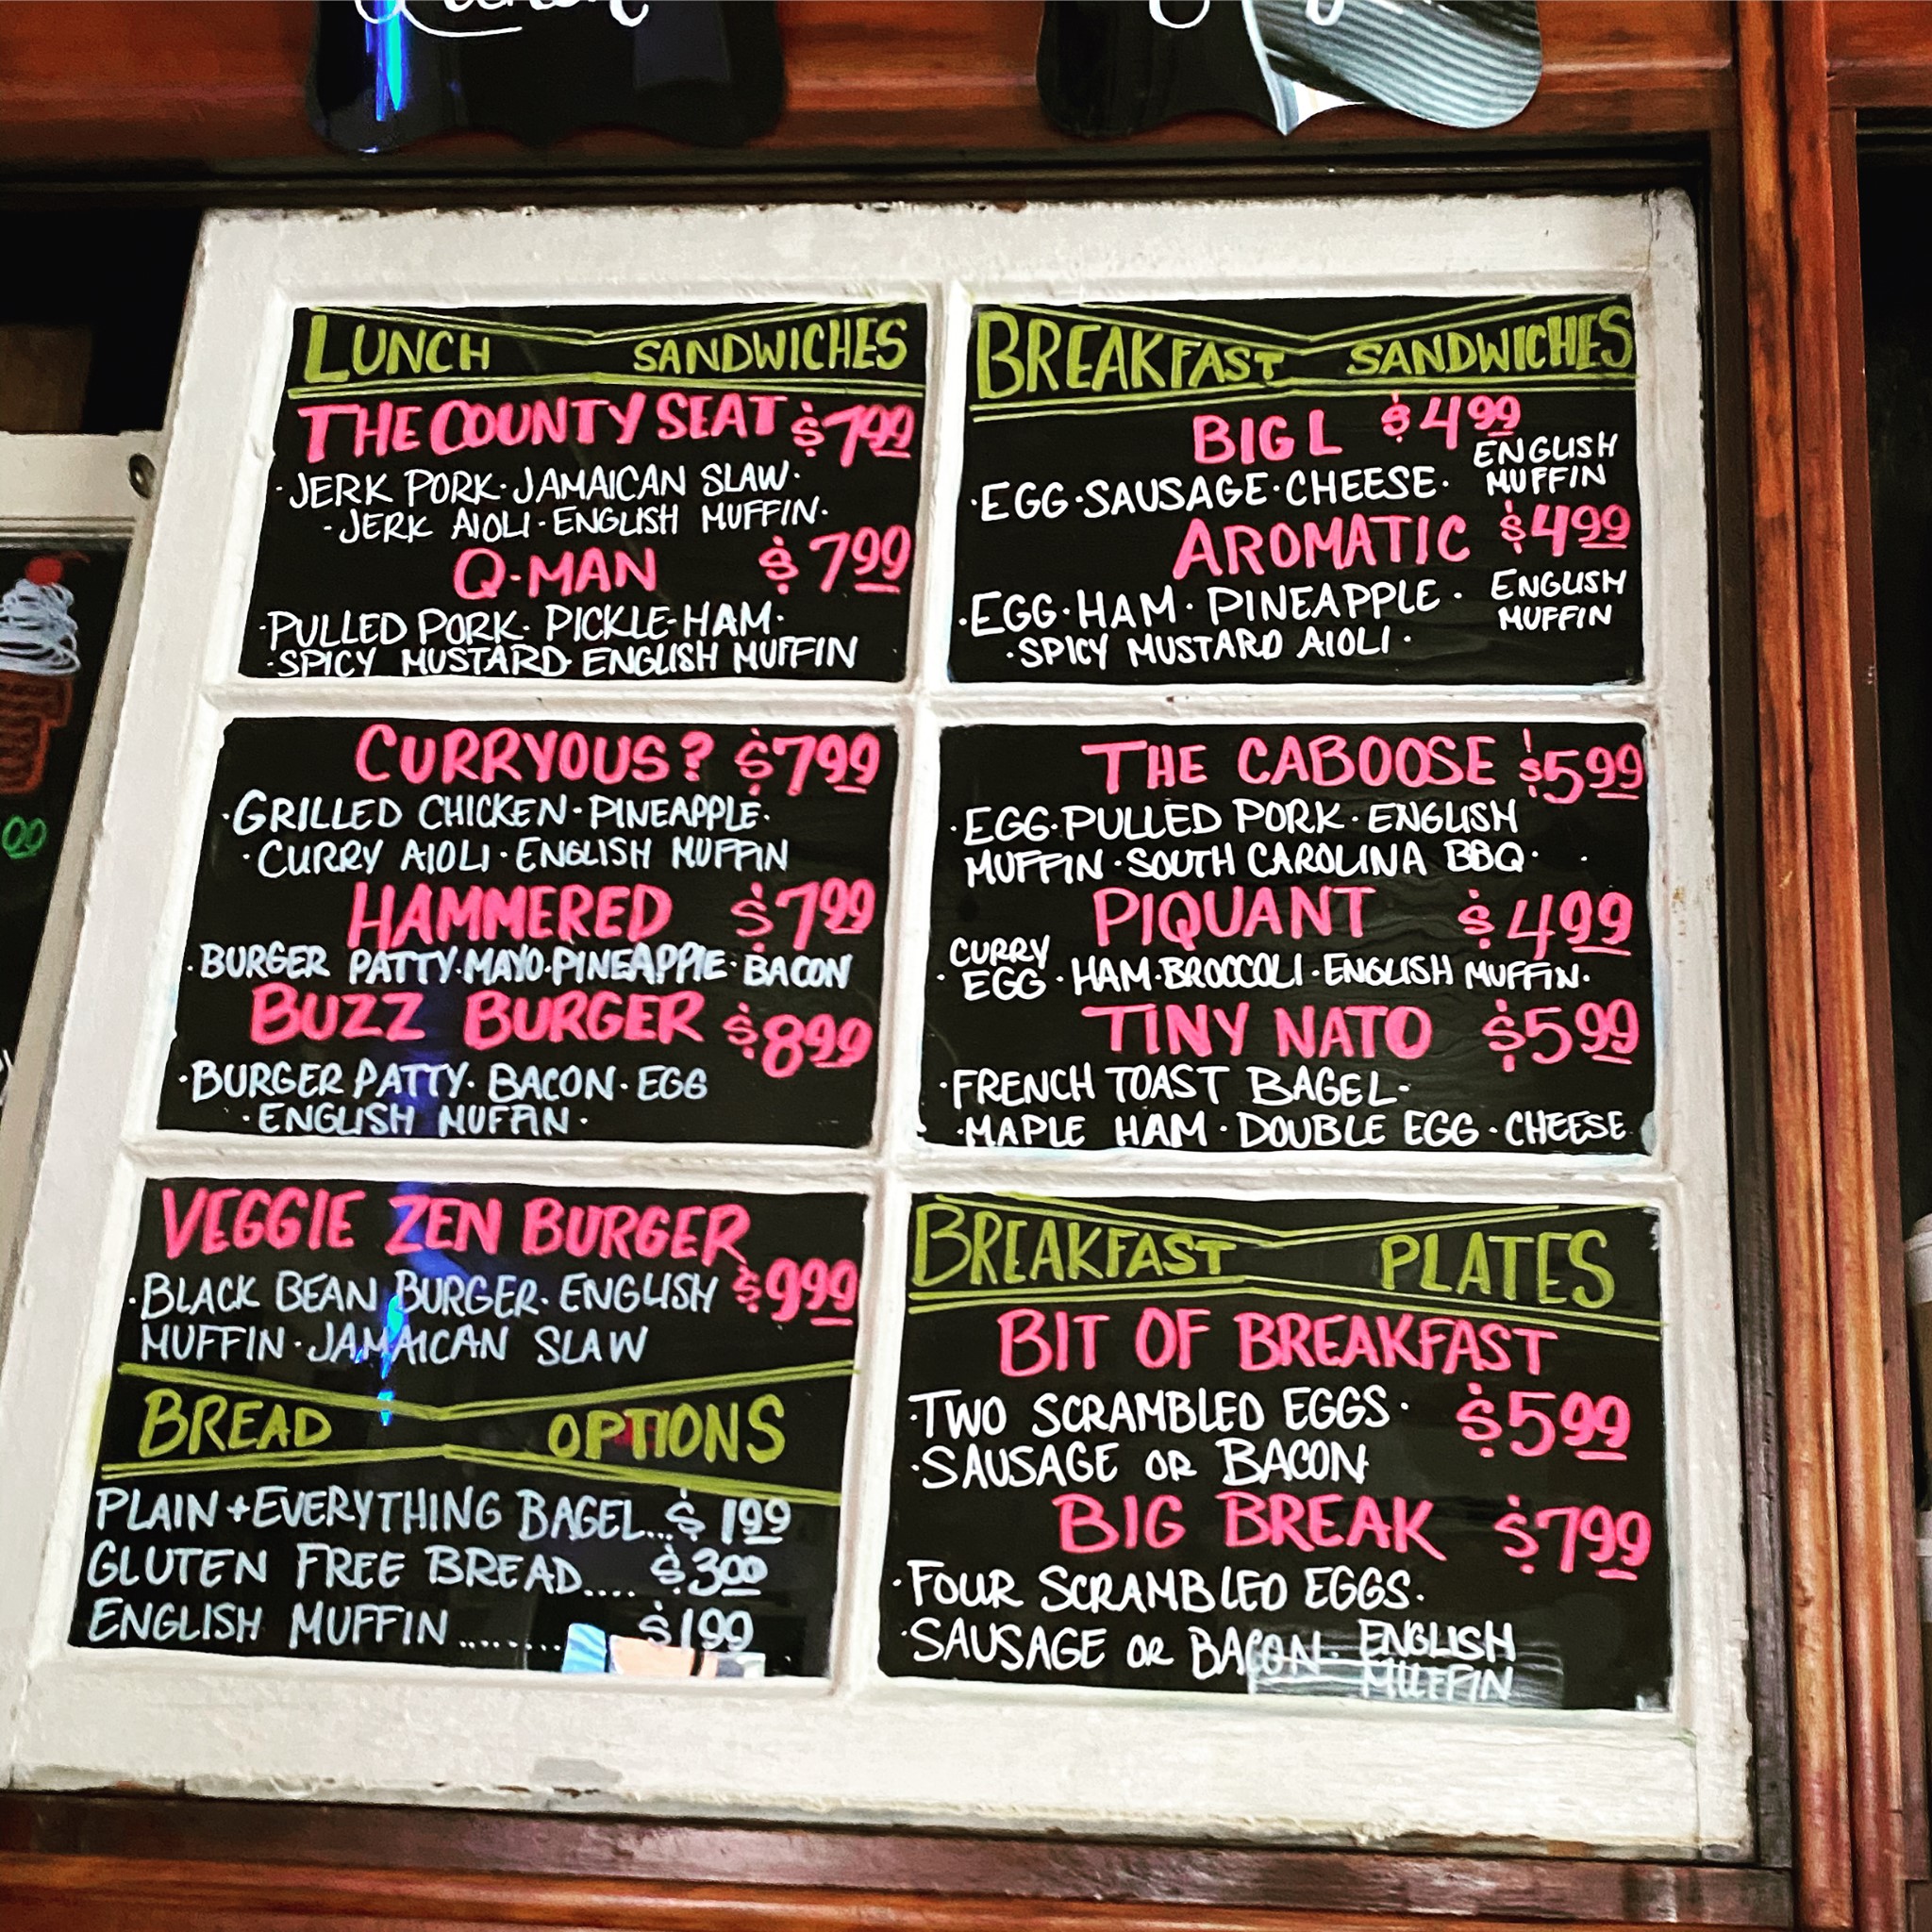 Kitchen
LUNCH SANDWICHES
THE COUNTY SEAT $7.99
·JERK PORK·JAMAICAN SLAW·
-JERK AIOLI·ENGLISH MUFFIN·
Q-MAN $7.99
·PULLED PORK·PICKLE-HAM·
·SPICY MUSTARD·ENGLISH MUFFIN
CURRYOUS? $7.99
·GRILLED CHICKEN·PINEAPPLE·
·CURRY AIOLI·ENGLISH MUFFIN
HAMMERED $7.99
·BURGER PATTY·MAYO·PINEAPPLE·BACON
BUZZ BURGER $8.99
·BURGER PATTY·BACON·EGG
·ENGLISH MUFFIN·
VEGGIE ZEN BURGER
·BLACK BEAN BURGER·ENGLISH $9.99
MUFFIN·JAMAICAN SLAW
BREAD OPTIONS
PLAIN+EVERYTHING BAGEL...$1.99
GLUTEN FREE BREAD.... $3.00
ENGLISH MUFFIN ........ $1.99
BREAKFAST SANDWICHES
BIG L $4.99
·EGG·SAUSAGE·CHEESE· ENGLISH
MUFFIN
AROMATIC $4.99
·EGG·HAM·PINEAPPLE· ENGLISH
MUFFIN
·SPICY MUSTARD AIOLI·
THE CABOOSE $5.99
·EGG·PULLED PORK·ENGLISH
MUFFIN·SOUTH CAROLINA BBQ·
PIQUANT $4.99
CURRY
·EGG·HAM·BROCCOLI·ENGLISH MUFFIN·
TINY NATO $5.99
·FRENCH TOAST BAGEL-
·MAPLE HAM·DOUBLE EGG·CHEESE
BREAKFAST PLATES
BIT OF BREAKFAST
·TWO SCRAMBLED EGGS· $5.99
·SAUSAGE OR BACON
BIG BREAK $7.99
·FOUR SCRAMBLED EGGS·
·SAUSAGE OR BACON· ENGLISH
MUFFIN
00